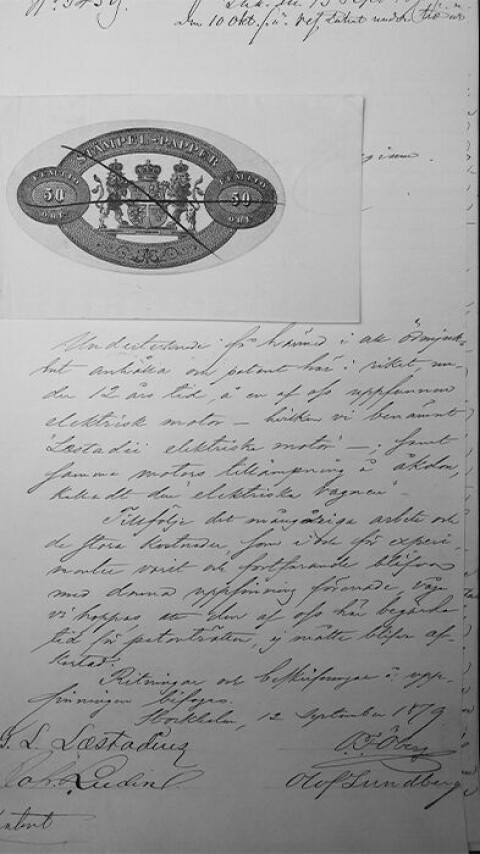 den 10 Okt. s. å.
STÄMPEL-PAPPER
FEMTIO
50
ÖRE
FEMTIO
50
ÖRE
Undertecknade få härmed i all ödmjuk-
het anhålla om patent här i riket un-
der 12 års tid, å en af oss uppfunnen
elektrisk motor – hvilken vi benämnt
"Læstadii elektriska motor" –; samt
samma motors tillämpning å åkdon,
kalladt den "elektriska vagnen".
Tillfölje det mångåriga arbete och
de stora kostnader, som både för experi-
menter varit och fortfarande blifva
med denna uppfinning förenade, våga
vi hoppas att den af oss här begärda
tid för patenträtten ej måtte blifva af-
kortad.
Ritningar och beskrifningar å upp-
finningen bifogas.
Stockholm, 12 September 1879
G. L. Læstadius
O. F. Öberg
Olof Sundberg